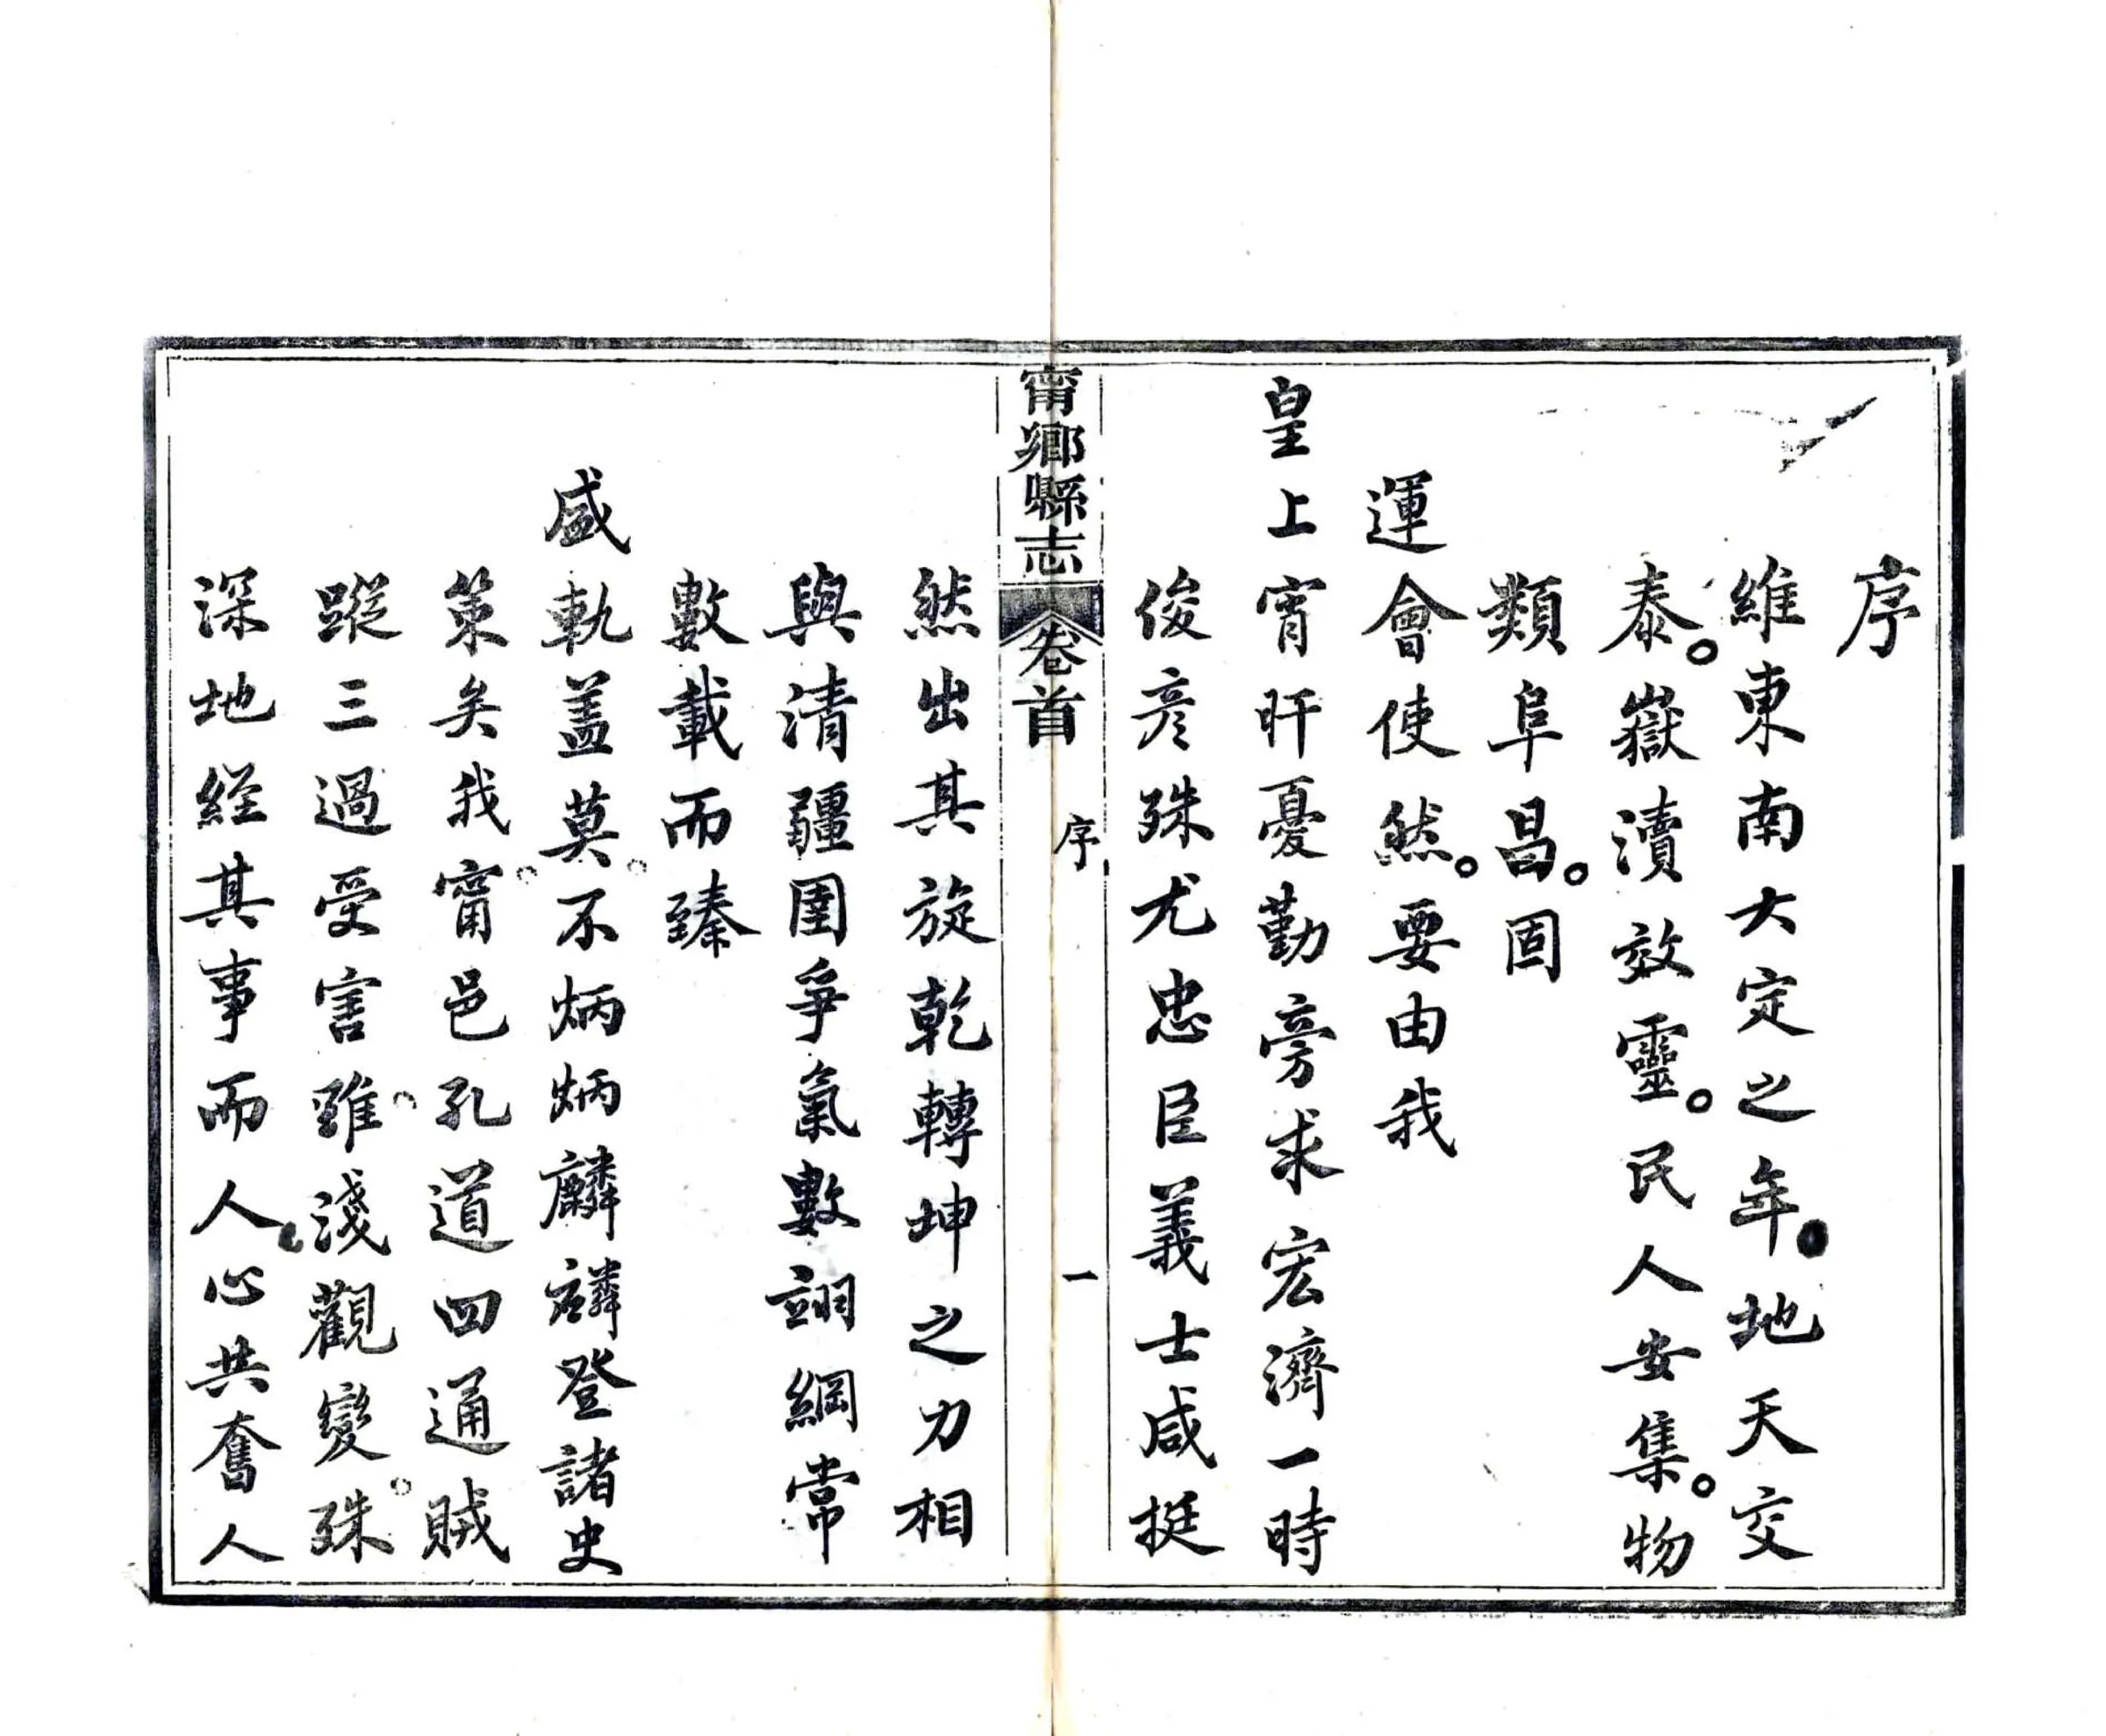 序
維東南大定之年地天交
泰。嶽瀆效靈。民人安集。物
類阜昌。固
運會使然。要由我
皇上宵旰憂勤旁求宏濟一時
俊彥殊尤忠臣義士咸挺
甯鄉縣志
卷首
序
一
然出其旋乾轉坤之力相
與清疆圉爭氣數翊綱常
數載而臻
盛軌蓋莫不炳炳麟麟登諸史
策矣我甯邑孔道四通賊
蹤三過受害雖淺觀變殊
深地經其事而人心共奮人